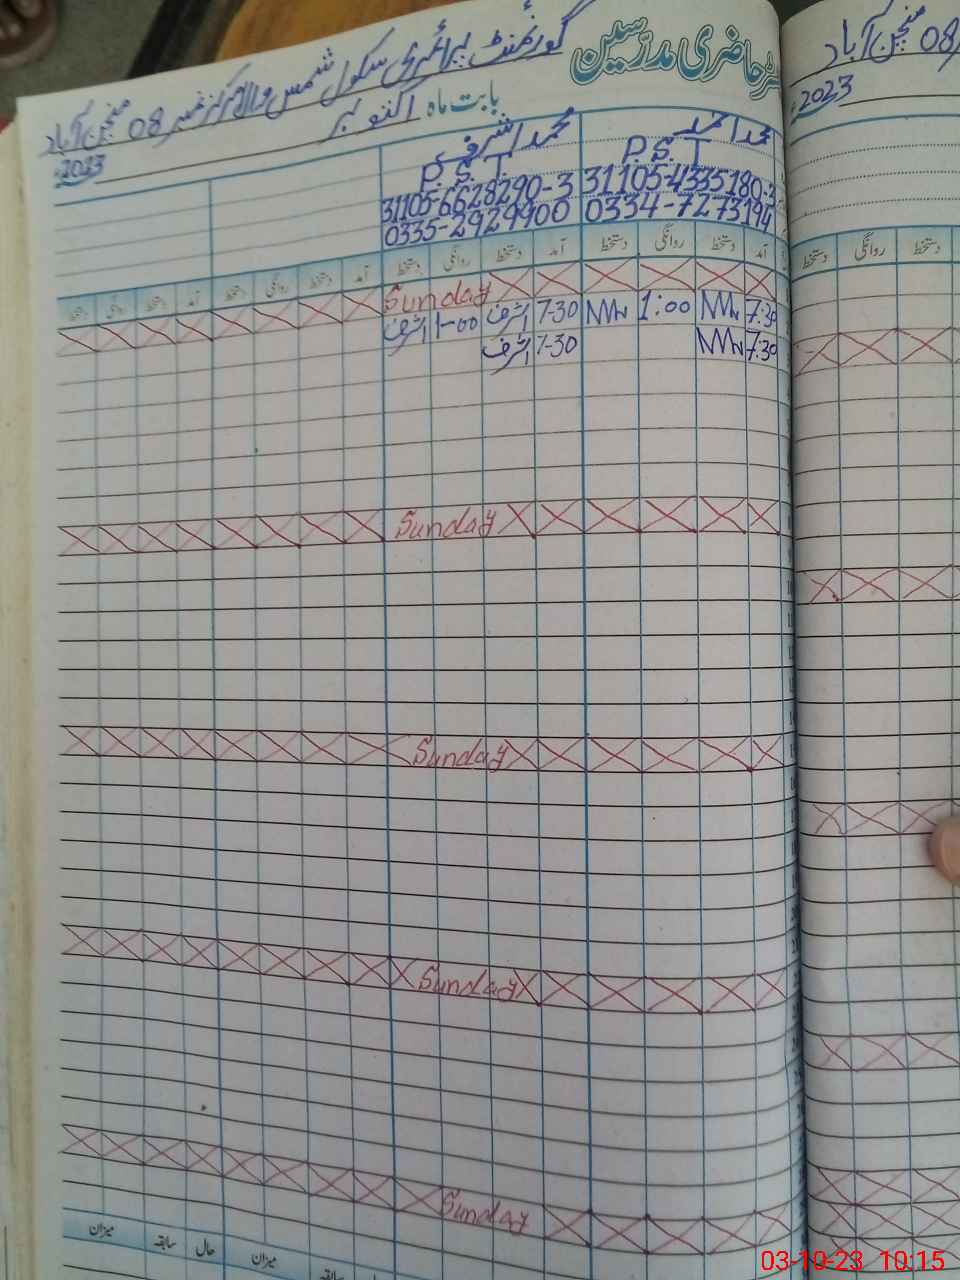 رجسٹر حاضری مدرسین
گورنمنٹ پرائمری سکول شمس والا مرکز نمبر 08 منچن آباد
بابت ماہ اکتوبر 2023
08 منچن آباد
2023
محمد احمد
محمد اشرف
P.S.T
P.S.T
31105-4335180-3
31105-6628290-3
0334-7273194
0335-2929900
آمد دستخط روانگی دستخط آمد دستخط روانگی دستخط آمد دستخط روانگی دستخط آمد دستخط روانگی دستخط
دستخط روانگی دستخط
Sunday
7:30 1:00 7-30 اشرف 1-00 اشرف
7:30 7-30 اشرف
Sunday
Sunday
Sunday
Sunday
میزان حال سابقہ میزان
سابقہ
03-10-23 10:15